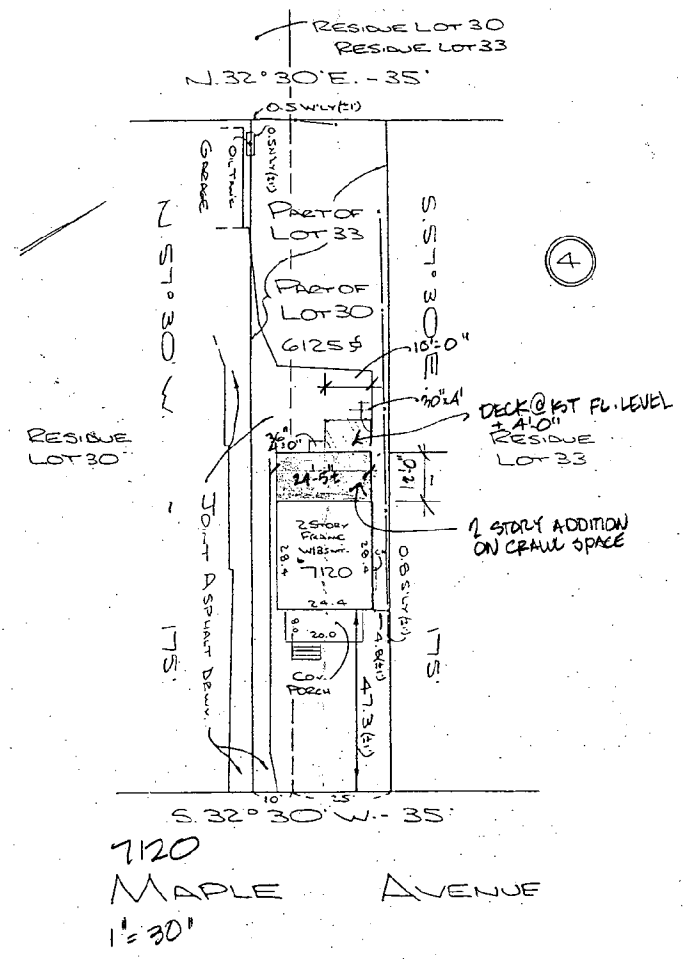 RESIDUE LOT 30
RESIDUE LOT 33
N.32°30'E.-35'
0.5 W'LY(±1)
0.5 N'LY(±1)
OIL TANK
GARAGE
PART OF
LOT 33
PART OF
LOT 30
6125
N 57°30'W.
-
175'
S.57°30'E
-
175'
4
10'-0"
30"x4'
DECK @ 1ST FL. LEVEL
± 4'-0"
RESIDUE
LOT 33
RESIDUE
LOT 30
36"
4'-0"
24'-5"±
12'-0"
2 STORY ADDITION
ON CRAWL SPACE
2 STORY
FRAME
W/BSMT.
7120
28.4
28.4
24.4
0.8 S'LY(±1)
8.0
20.0
4.8(±1)
COV.
PORCH
47.3(±1)
JOINT ASPHALT DRWY.
10'
25'
S.32°30'W.-35'
7120
MAPLE AVENUE
1"=30'